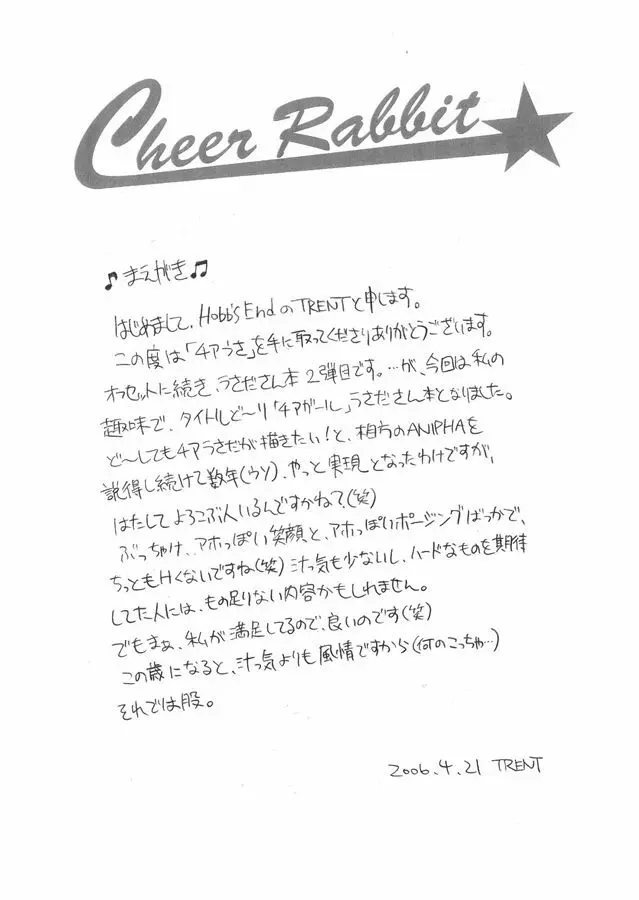 Cheer Rabbit
♪まえがき♫
はじめまして、Hobb's EndのTRENTと申します。
この度は「チアうさ」を手に取ってくださりありがとうございます。
オフセットに続き、うさださん本2弾目です。…が、今回は私の
趣味で、タイトルど〜り「チアガール」うさださん本となりました。
ど〜してもチアうさだが描きたい！と、相方のANIPHAを
説得し続けて数年(ウソ)、やっと実現となったわけですが、
はたしてよろこぶ人いるんですかねえ？(笑)
ぶっちゃけ、アホっぽい笑顔と、アホっぽいポージングばっかで、
ちっともHくないですね(笑) 汁っ気も少ないし、ハードなものを期待
してた人には、もの足りない内容かもしれません。
でもまぁ、私が満足してるので、良いのです(笑)
この歳になると、汁っ気よりも風情ですから(何のこっちゃ…)
それでは股。
2006.4.21 TRENT